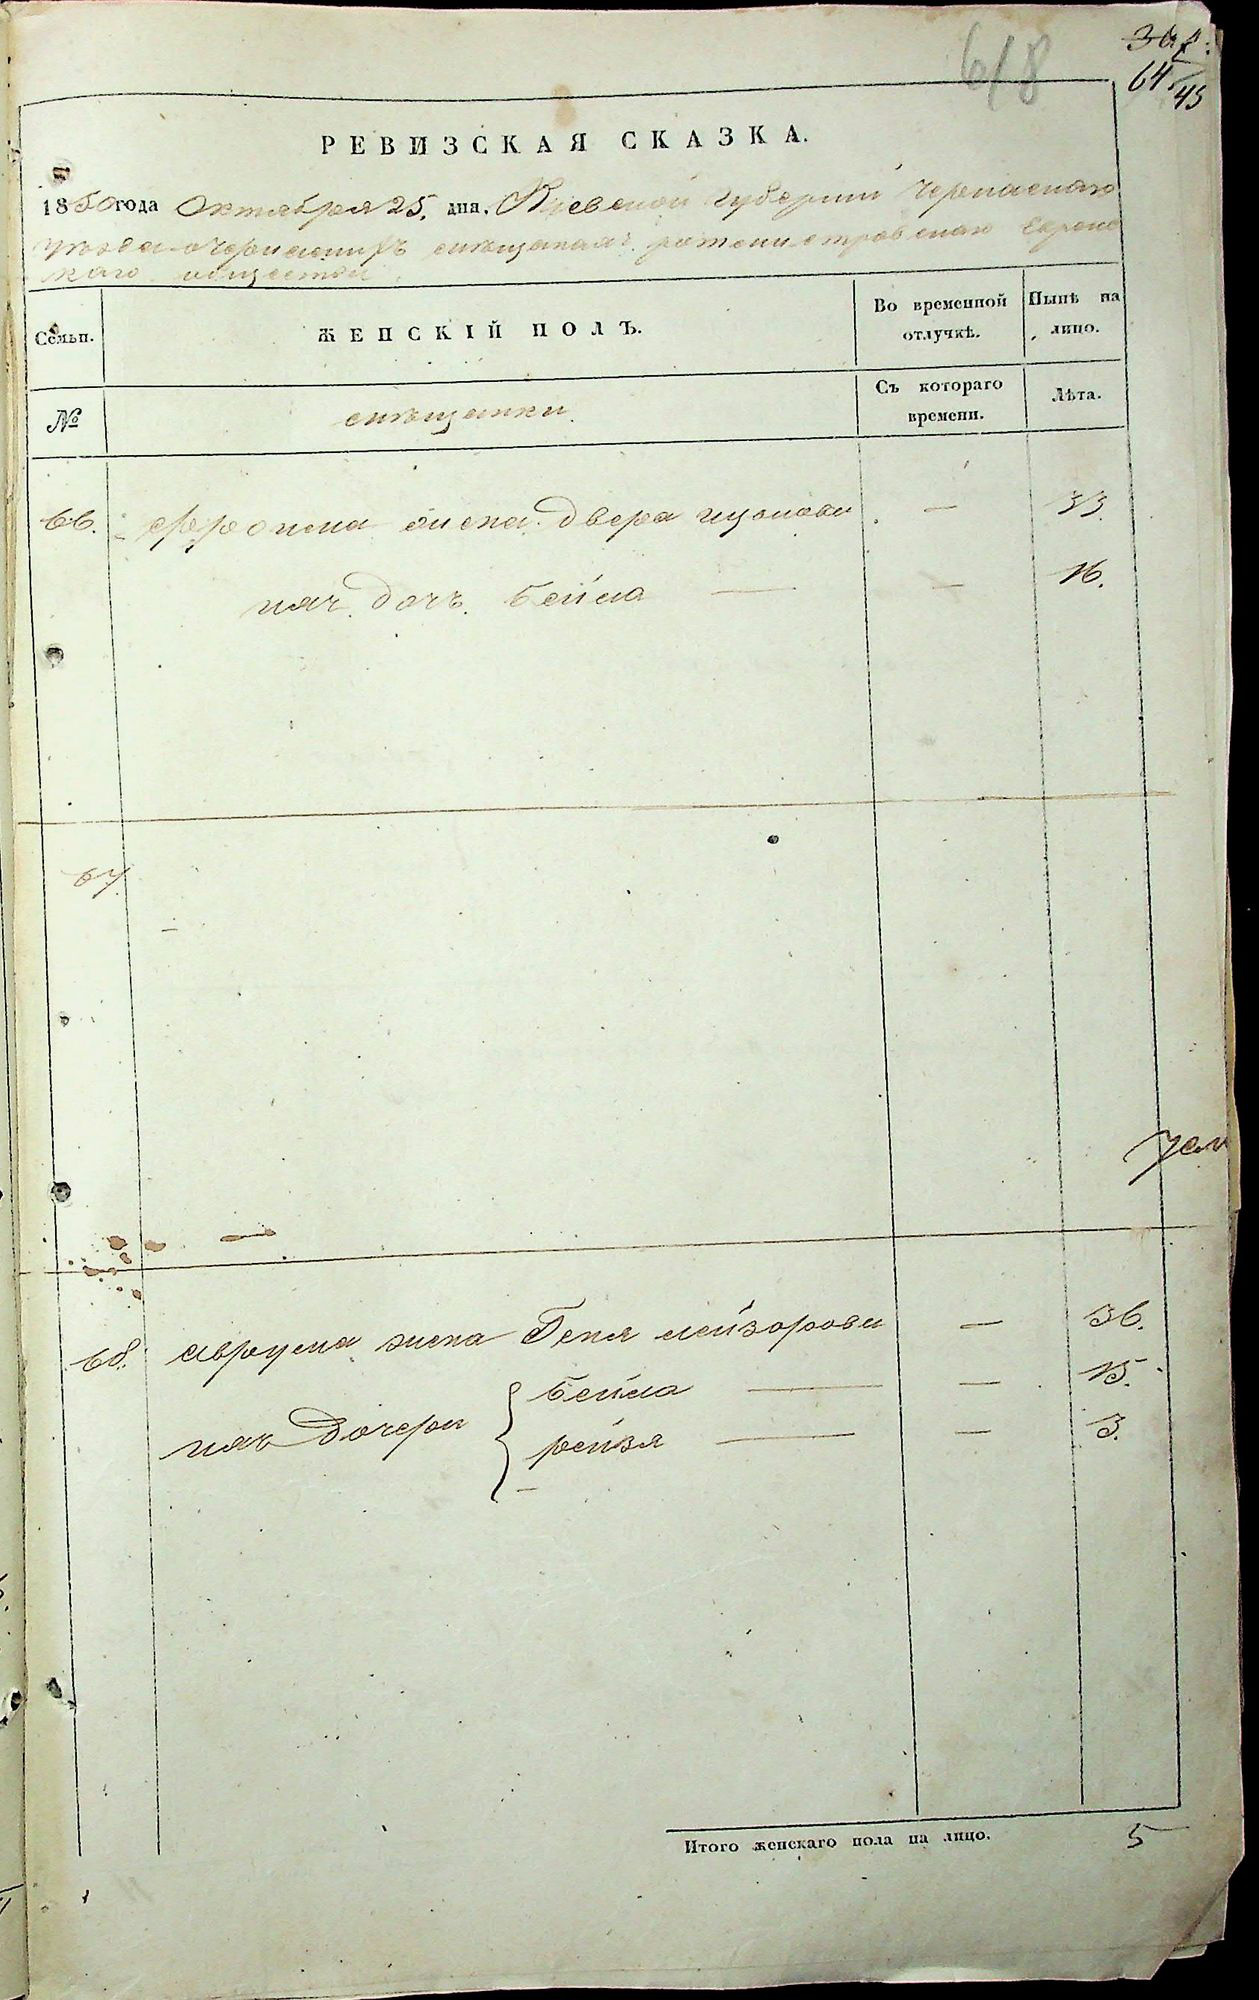 618
64
45
РЕВИЗСКАЯ СКАЗКА.
1850 года Октября 25. дня. Киевской Губернии Черкаскаго
уѣзда о мѣщанахъ еврейс
каго общества
Семьи.
ЖЕНСКІЙ ПОЛЪ.
Во временной отлучкѣ.
Нынѣ на лицо.
№
мѣщанки
Съ котораго времени.
Лѣта.
66. жена Двера — 33.
дочь Бейла — — 16.
67
68. Аврума жена Геня Лейзорова — 36.
дочери { Бейла — — 15.
рейзя — — 3.
Итого женскаго пола на лицо. 5